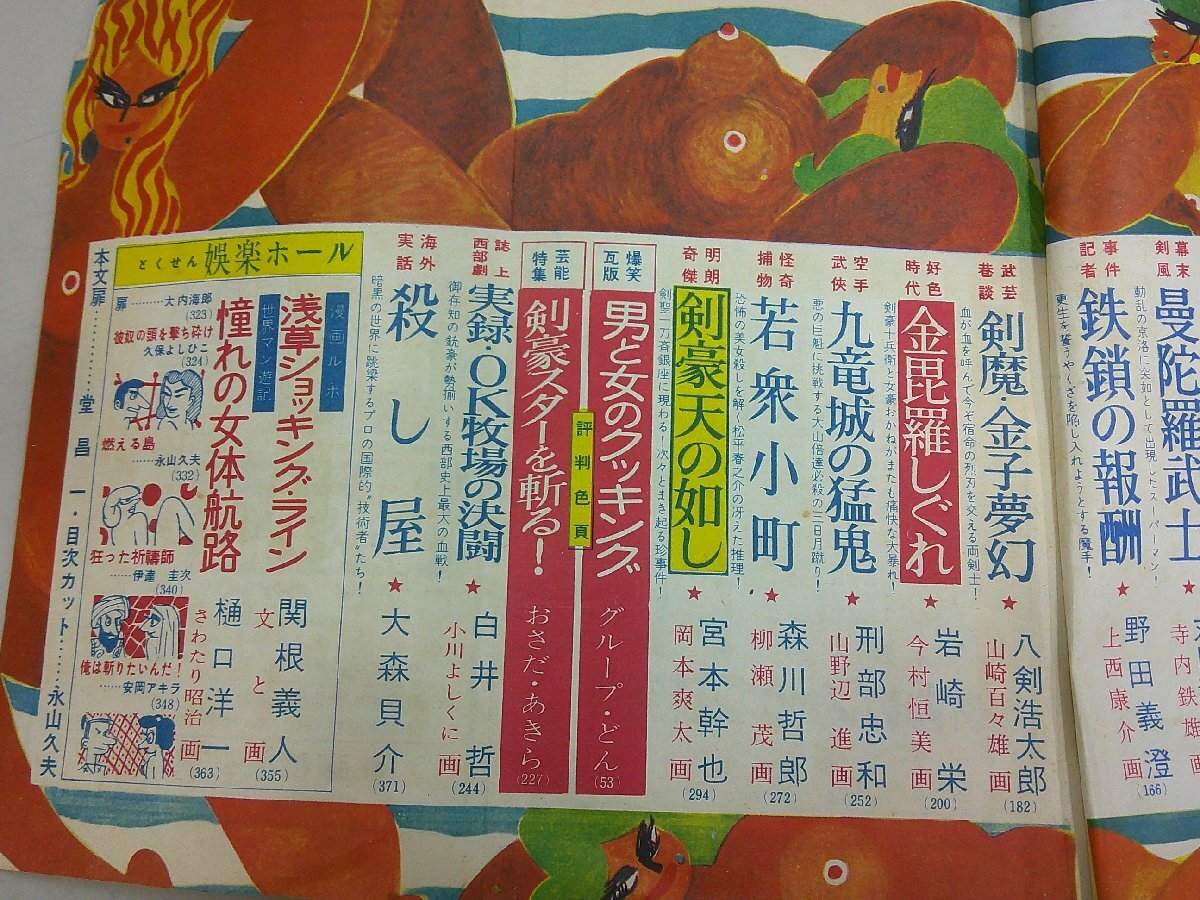 幕末
剣風
曼陀羅武士
動乱の京洛に突如として出現したスーパーマン!
寺内鉄雄画
事件
記者
鉄鎖の報酬
更生を誓うやくざを陥し入れようとする魔手!
野田義澄
上西康介画
(166)
武芸
巷談
剣魔・金子夢幻
血が血を呼んで今ぞ宿命の烈刃を交える両剣士!
★
八剣浩太郎
山崎百々雄画
(182)
好色
時代
金毘羅しぐれ
剣豪十兵衛と女豪おかねがまたも痛快な大暴れ!
★
岩崎栄
今村恒美画
(200)
空手
武侠
九竜城の猛鬼
悪の巨魁に挑戦する大山倍達必殺の三日月蹴り!
★
刑部忠和
山野辺進画
(252)
怪奇
捕物
若衆小町
恐怖の美女殺しを解く松平春之介の冴えた推理!
★
森川哲郎
柳瀬茂画
(272)
明朗
奇傑
剣豪天の如し
剣聖一刀斉銀座に現わる!次々とまき起る珍事件!
★
宮本幹也
岡本爽太画
(294)
爆笑
瓦版
男と女のクッキング
グループ・どん
(53)
評判色頁
芸能
特集
剣豪スターを斬る!
おさだ・あきら
(227)
誌上
西部劇
実録・OK牧場の決闘
御存知の銃豪が勢揃いする西部史上最大の血戦!
★
白井哲
小川よしくに画
(244)
海外
実話
殺し屋
暗黒の世界に跳梁するプロの国際的"技術者"たち!
★
大森貝介
(371)
とくせん 娯楽ホール
漫画ルポ
浅草ショッキング・ライン
関根義人
文と画
(355)
世界マン遊記
憧れの女体航路
樋口洋一
さわたり昭治画
(363)
扉………大内海郎
(323)
彼奴の頭を撃ち砕け
久保よしひこ
(324)
燃える島
……永山久夫
(332)
狂った祈禱師
……伊達圭次
(340)
俺は斬りたいんだ!
……安岡アキラ
(348)
本文扉………堂昌一・目次カット……永山久夫